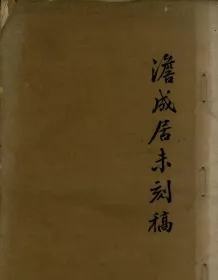 澹成居未刻稿